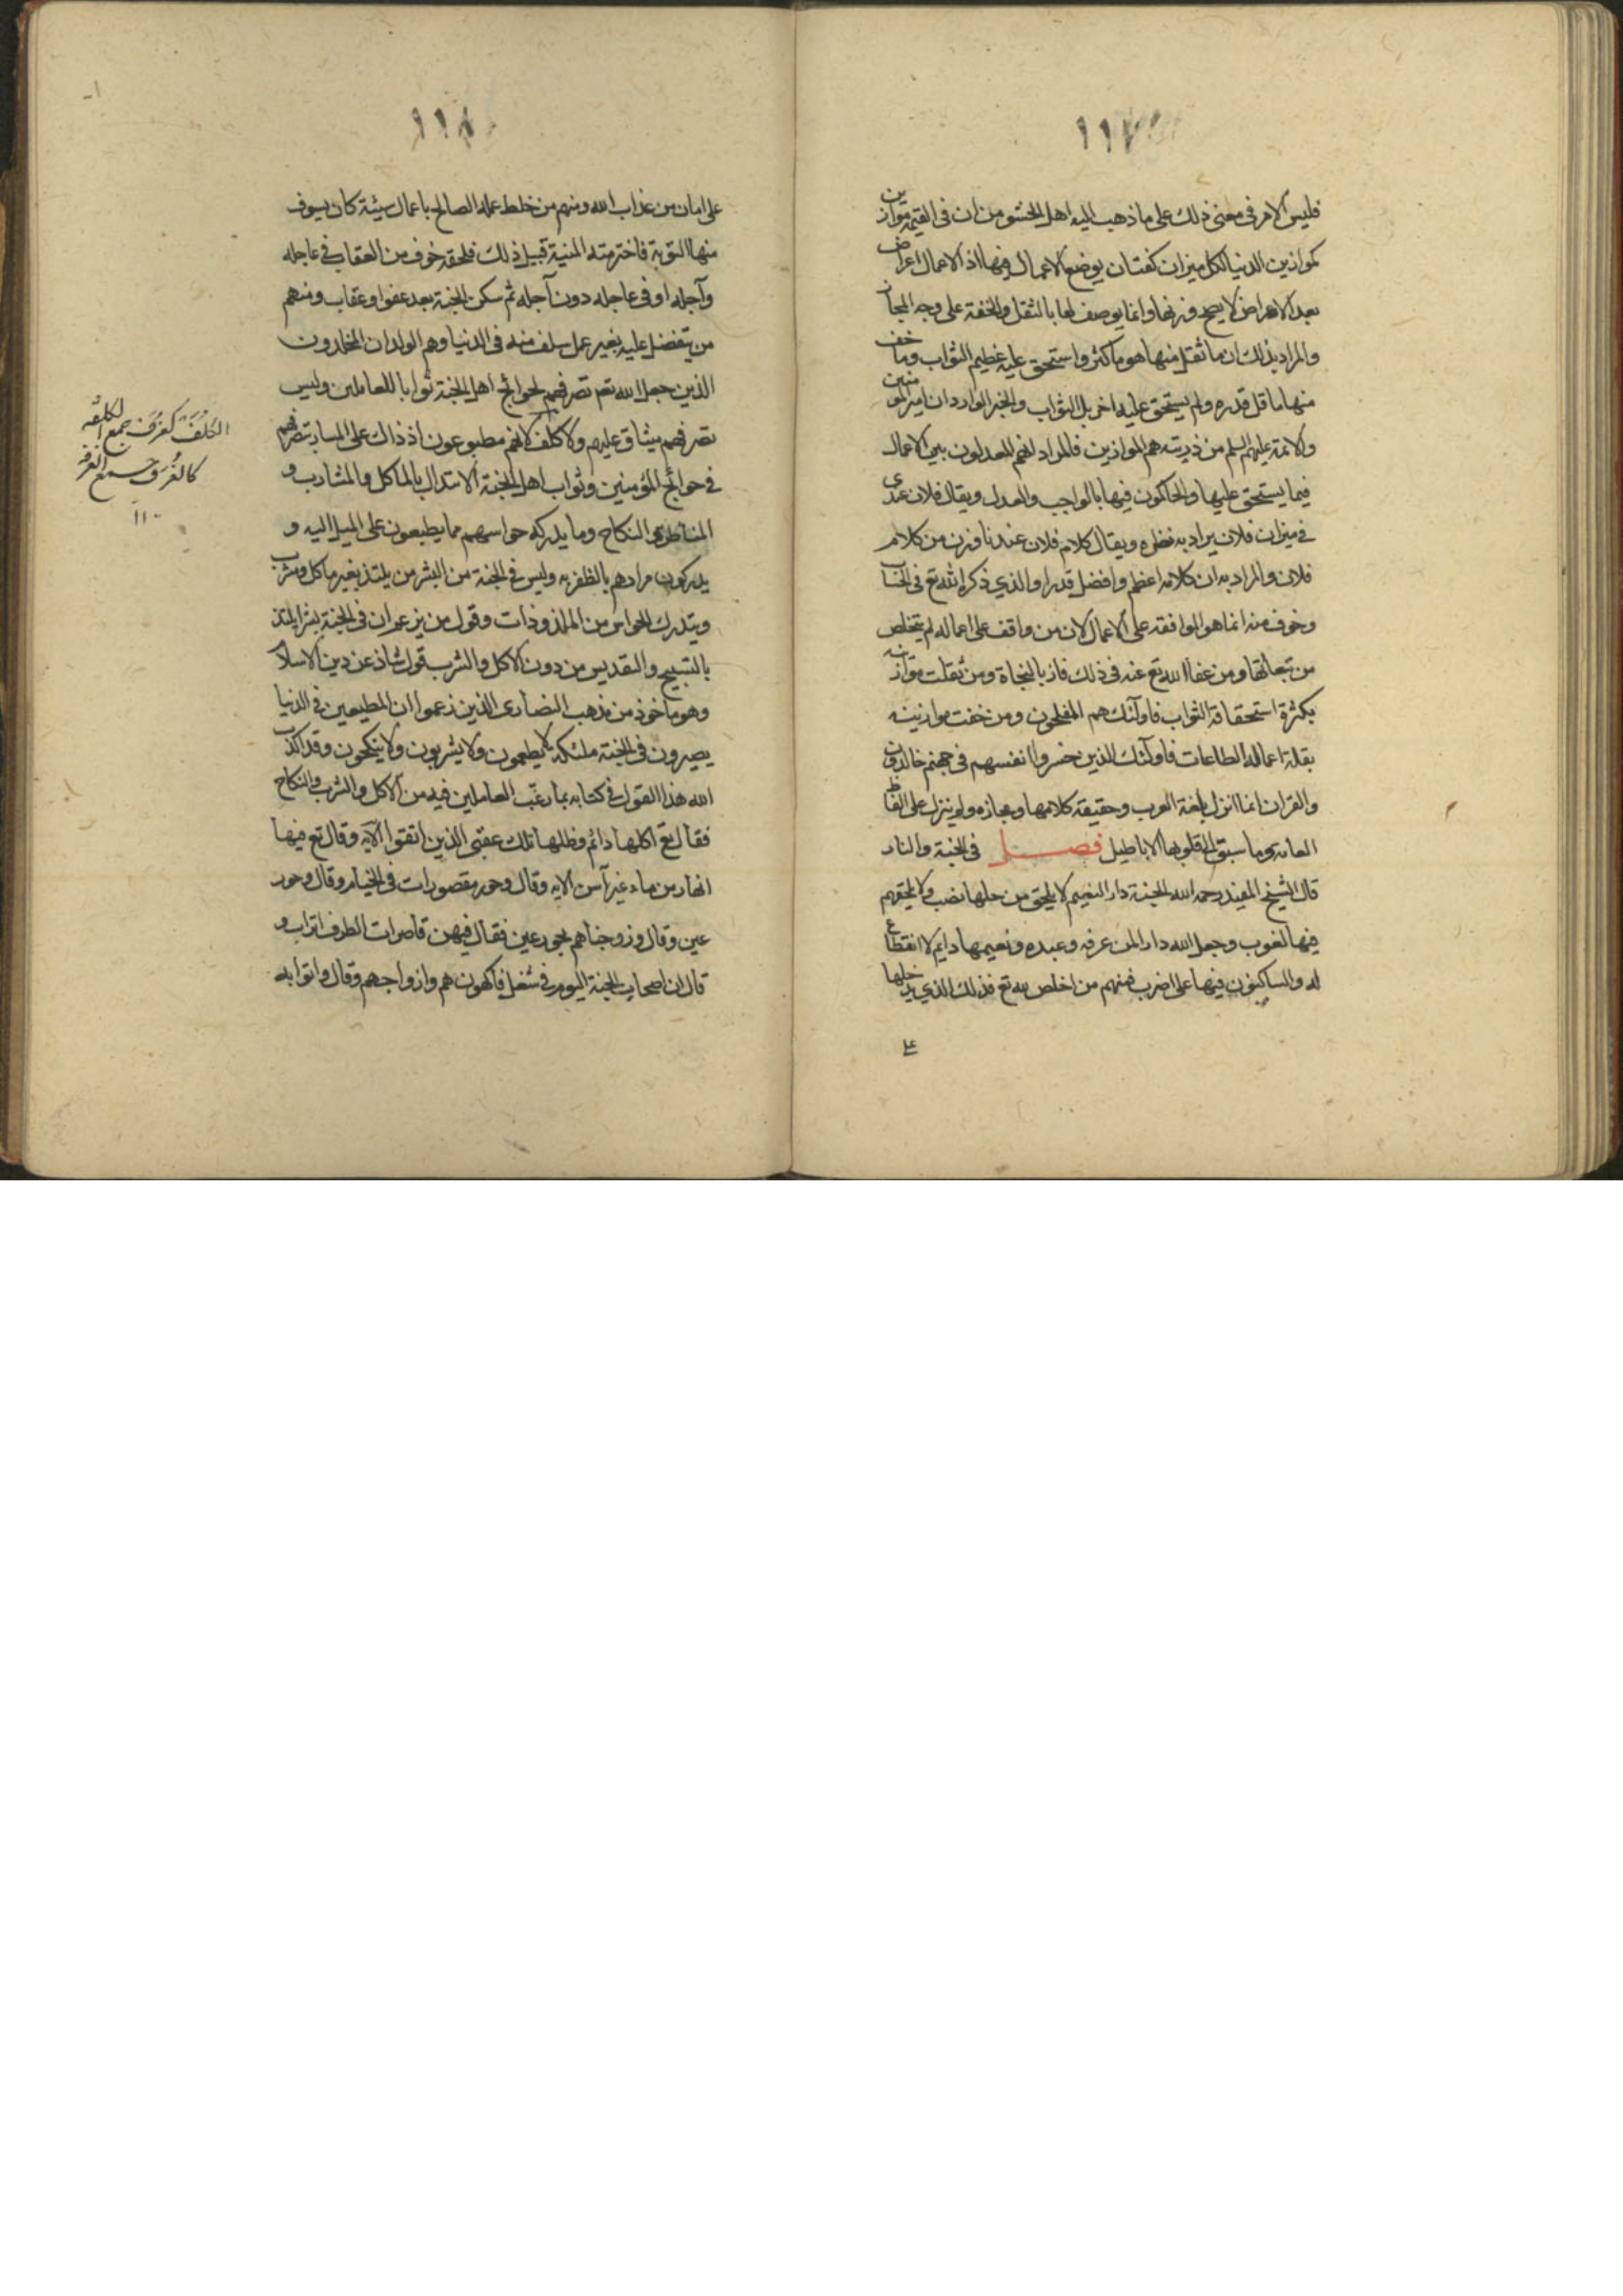 ١١٧
فليس الامر فى معنى ذلك على ما ذهب اليه اهل الحشو من ان فى القيمة موازين
كموازين الدنيا لكل ميزان كفتان يوضع الاعمال فيها اذ الاعمال اعراض
بعد الاعراض لا يصح وزنها وانما يوصف لها بالثقل والخفة على وجه المجاز
والمراد بذلك ان ما ثقل منها هو ما كثر واستحق عليه عظيم الثواب وما خف
منها ما قل قدره ولم يستحق عليه اخر بل الثواب والخبر الوارد ان امير المومنين
والائمة عليهم السلم من ذريته هم الموازين فالمراد انهم المعدلون بين الاعمال
فيما يستحق عليها والحاكمون فيها بالواجب والعدل ويقال فلان عندى
فى ميزان فلان يراد به نظره ويقال كلام فلان عندنا وزن من كلام
فلان والمراد به ان كلامه اعظم وافضل قدرا والذي ذكره الله تع فى الحساب
وخوف منه انما هو الموافقه على الاعمال لان من واقف على اعماله لم يتخلص
من تبعاتها ومن عفا الله تع عنه فى ذلك فاز بالنجاة ومن ثقلت موازنه
بكثرة استحقاقه الثواب فاولئك هم المفلحون ومن خفت موازينه
بقلة اعماله الطاعات فاولئك الذين خسروا انفسهم فى جهنم خالدون
والقران انما انزل بلغة العرب وحقيقة كلامها ومجازه ولم ينزل على الفاظ
العامه وما سبق الى قلوبها الاباطيل فصل فى الجنة والنار
قال الشيخ المفيد رحمه الله الجنة دار النعيم لا يلحق من حلها نصب ولا يلحقهم
فيها لغوب وجعل الله دارا لمن عرفه وعبده ونعيمها دايم لا انقطاع
له والساكنون فيها على اضرب فمنهم من اخلص لله تع فذلك الذي يدخلها
على
١١٨
على امان من عذاب الله ومنهم من خلط عمله الصالح باعمال سيئة كان يسوف
منها التوبة فاخترمته المنية قبيل ذلك فلحقه خوف من العقاب فى عاجله
وآجله او فى عاجله دون آجله ثم سكن الجنة بعد عفو او عقاب ومنهم
من يتفضل عليه بغير عمل سلف منه فى الدنيا وهم الولدان المخلدون
الذين جعل الله تع تصرفهم لحوائج اهل الجنة ثوابا للعاملين وليس
تصرفهم مشاق عليهم ولا كلف لانهم مطبوعون اذ ذاك على المسار بتصرفهم
فى حوائج المؤمنين وثواب اهل الجنة الابتذال بالماكل والمشارب و
المناظر والنكاح وما يدركه حواسهم مما يطبعون على الميل اليه و
يدركون مرادهم بالظفر به وليس فى الجنة من البشر من يلتذ بغير ماكل ومشرب
ويتدرك الحواس من الملذوذات وقول من يزعم ان فى الجنة بشرا يلتذ
بالتسبيح والتقديس من دون الاكل والشرب قول شاذ عن دين الاسلام
وهو ماخوذ من مذهب النصارى الذين زعموا ان المطيعين فى الدنيا
يصيرون فى الجنة ملئكة لا يطعمون ولا يشربون ولا ينكحون وقد اكذب
الله هذا القول فى كتابه بما رغّب العاملين فيه من الاكل والشرب والنكاح
فقال تع اكلها دائم وظلها تلك عقبى الذين اتقوا الآيه وقال تع فيها
انهار من ماء غير آسن الايه وقال وحور مقصورات فى الخيام وقال وحور
عين وقال وزوجناهم بحور عين فقال فيهن قاصرات الطرف اتراب و
قال ان اصحاب الجنة اليوم فى شغل فاكهون هم وازواجهم وقال واتوا به
الكُلَفْ كغُرَف جمع الكلفه
كالغُرَف جمع الغرفه
١١٠